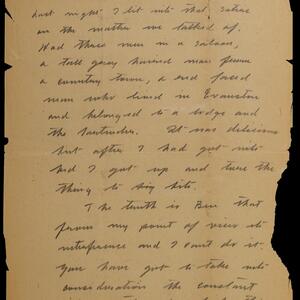 last night I lit into that satire
on the matter we talked of.
Had three men in a saloon,
a tall gray haired man from
a country town, a red faced
man who lived in Evanston
and belonged to a lodge and
the bartender. It was delicious
but after I had got into
hid I got up and tore the
thing to tiny bits.
The truth is Ben that
from my point of view its
interference and I can't do it.
You have got to take into
consideration the constant